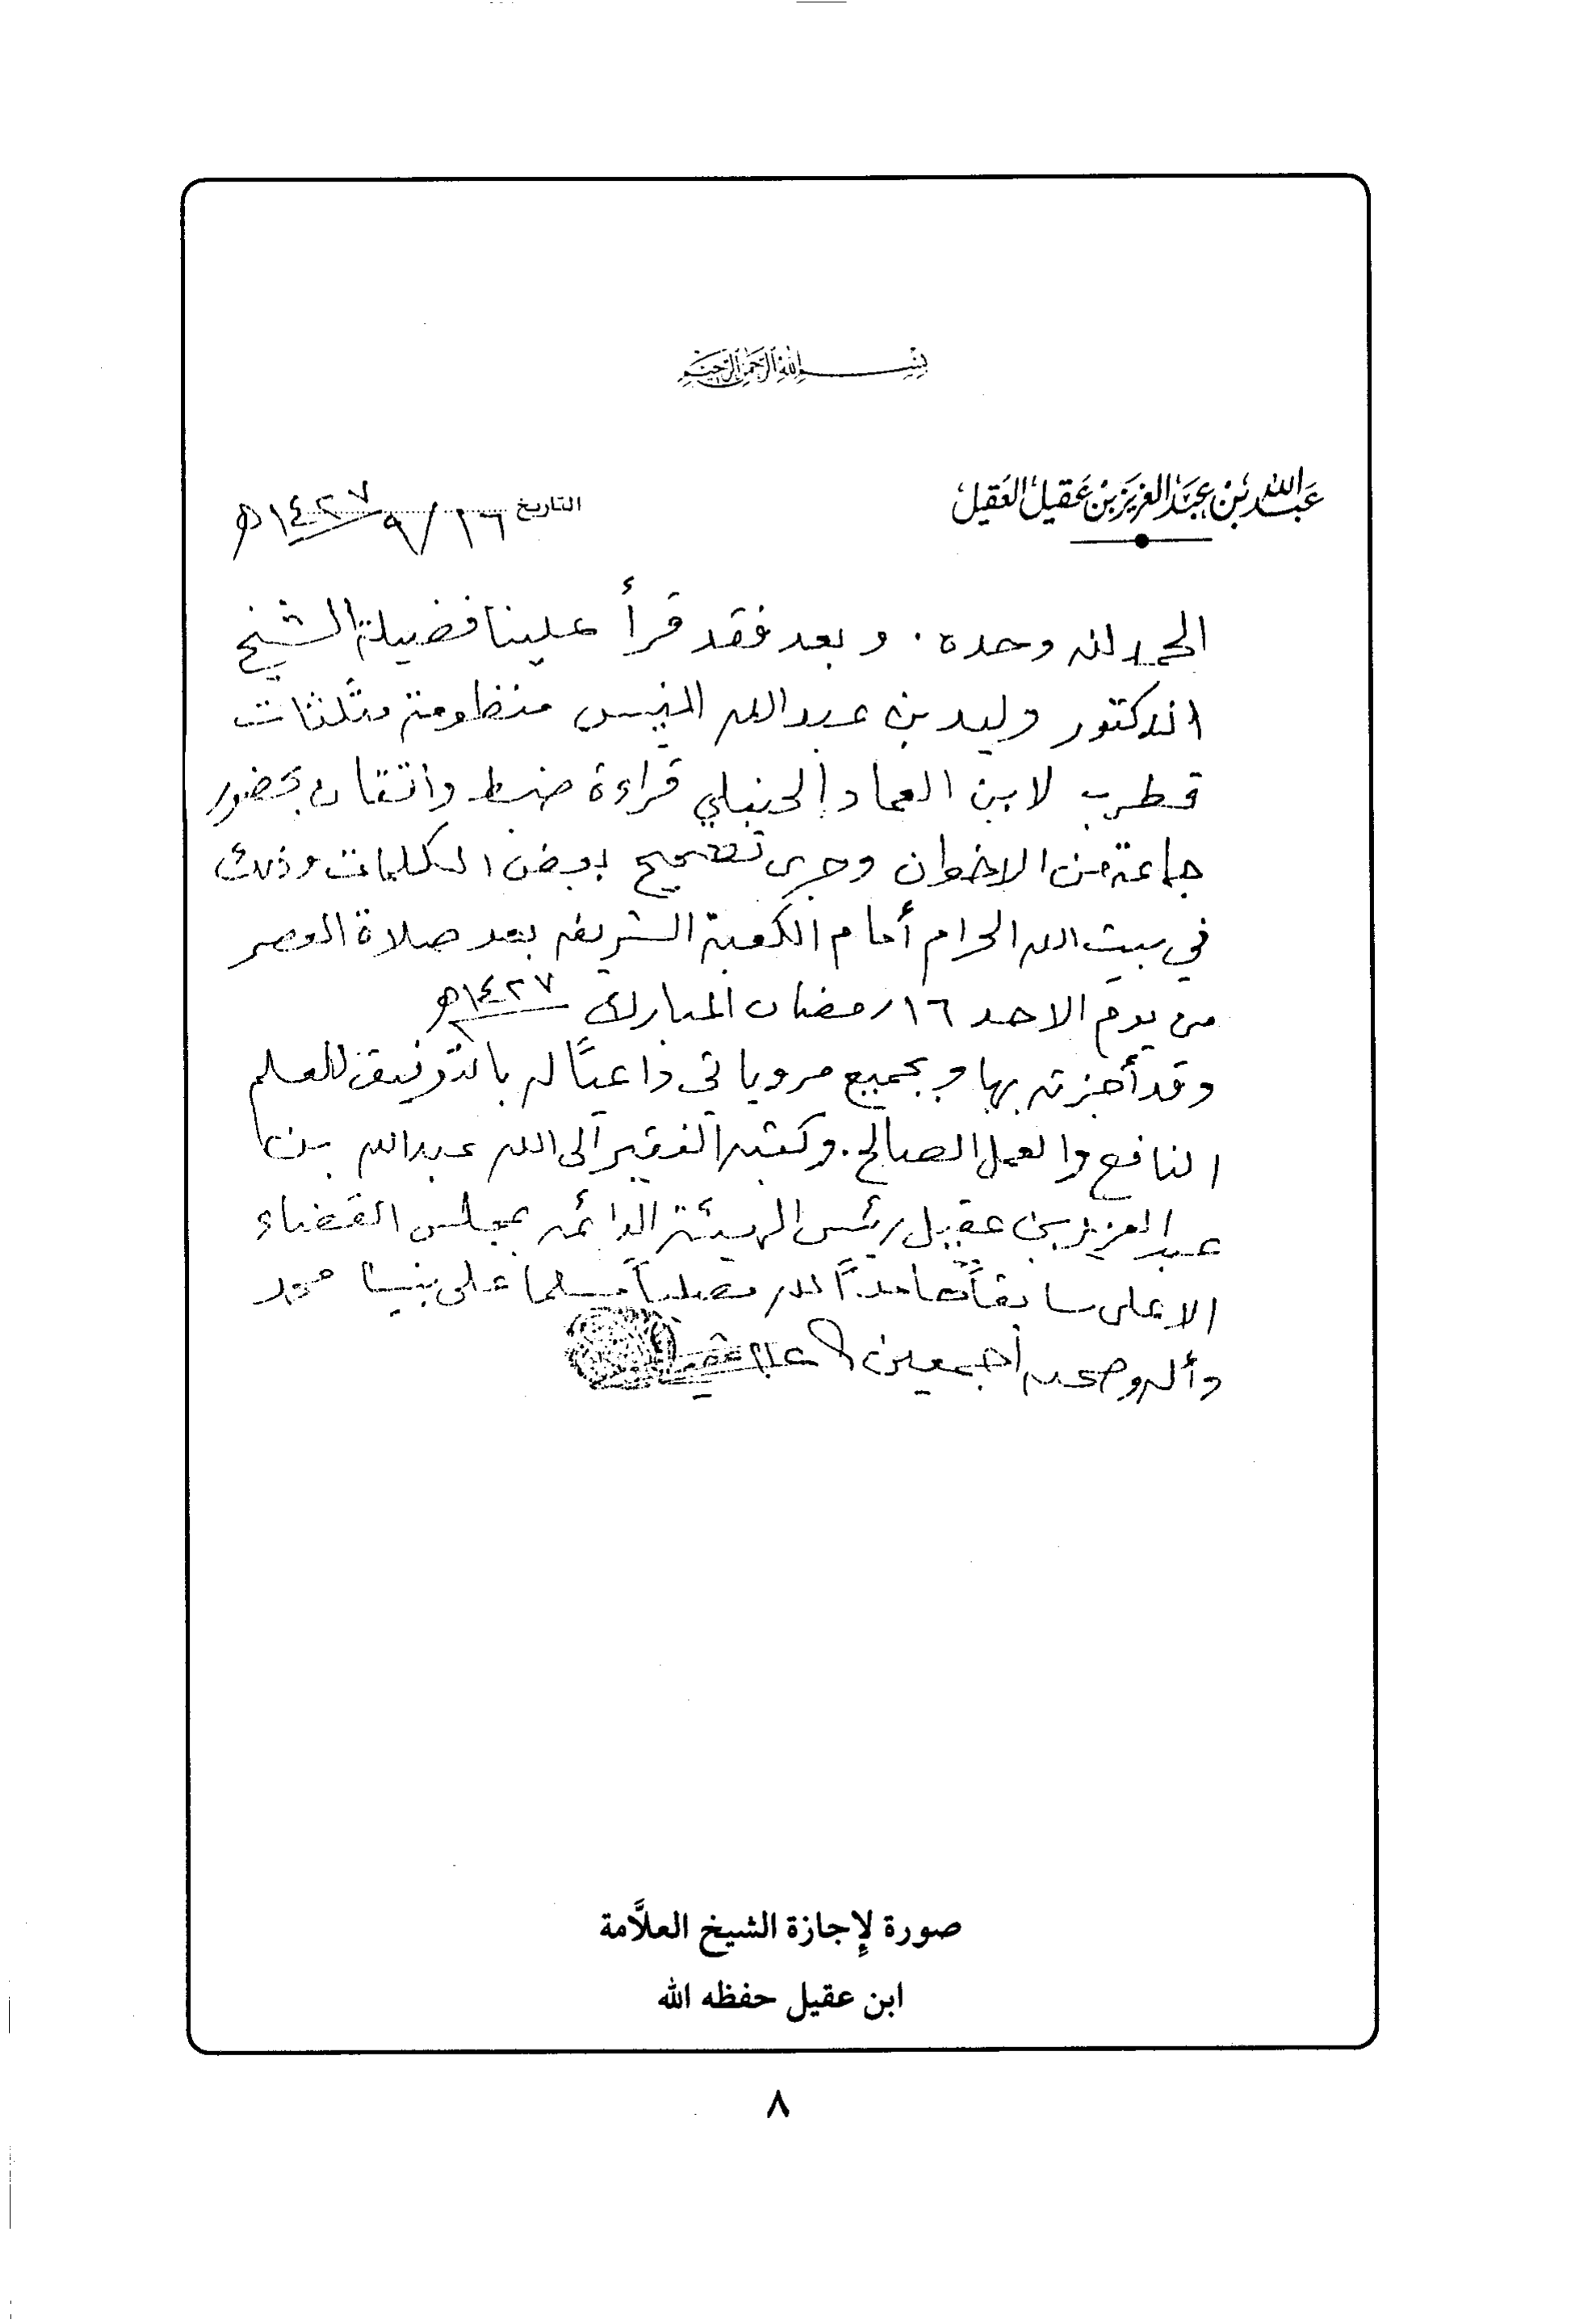 بسم الله الرحمن الرحيم
عبد الله بن عبد العزيز بن عقيل العقيل
التاريخ ١٦ / ٩ / ١٤٢٧ هـ
الحمد لله وحده . وبعد فقد قرأ علينا فضيلة الشيخ
الدكتور وليد بن عبدالله المنيس منظومة مثلثات
قطرب لابن العماد الحنبلي قراءة ضبط واتقان بحضور
جماعة من الاخوان وجرى تصحيح بعض الكلمات وذلك
في بيت الله الحرام أمام الكعبة الشريفه بعد صلاة العصر
من يوم الاحد ١٦ رمضان المبارك ١٤٢٧ هـ
وقد أجزته بها وبجميع مروياتي داعيًا له بالتوفيق للعلم
النافع والعمل الصالح . وكتبه الفقير الى الله عبدالله بن
عبد العزيز بن عقيل رئيس الهيئة الدائمه بمجلس القضاء
الاعلى سابقاً حامداً لله مصلياً مسلما على نبينا محمد
وأله وصحبه أجمعين
صورة لإجازة الشيخ العلَّامة
ابن عقيل حفظه الله
٨